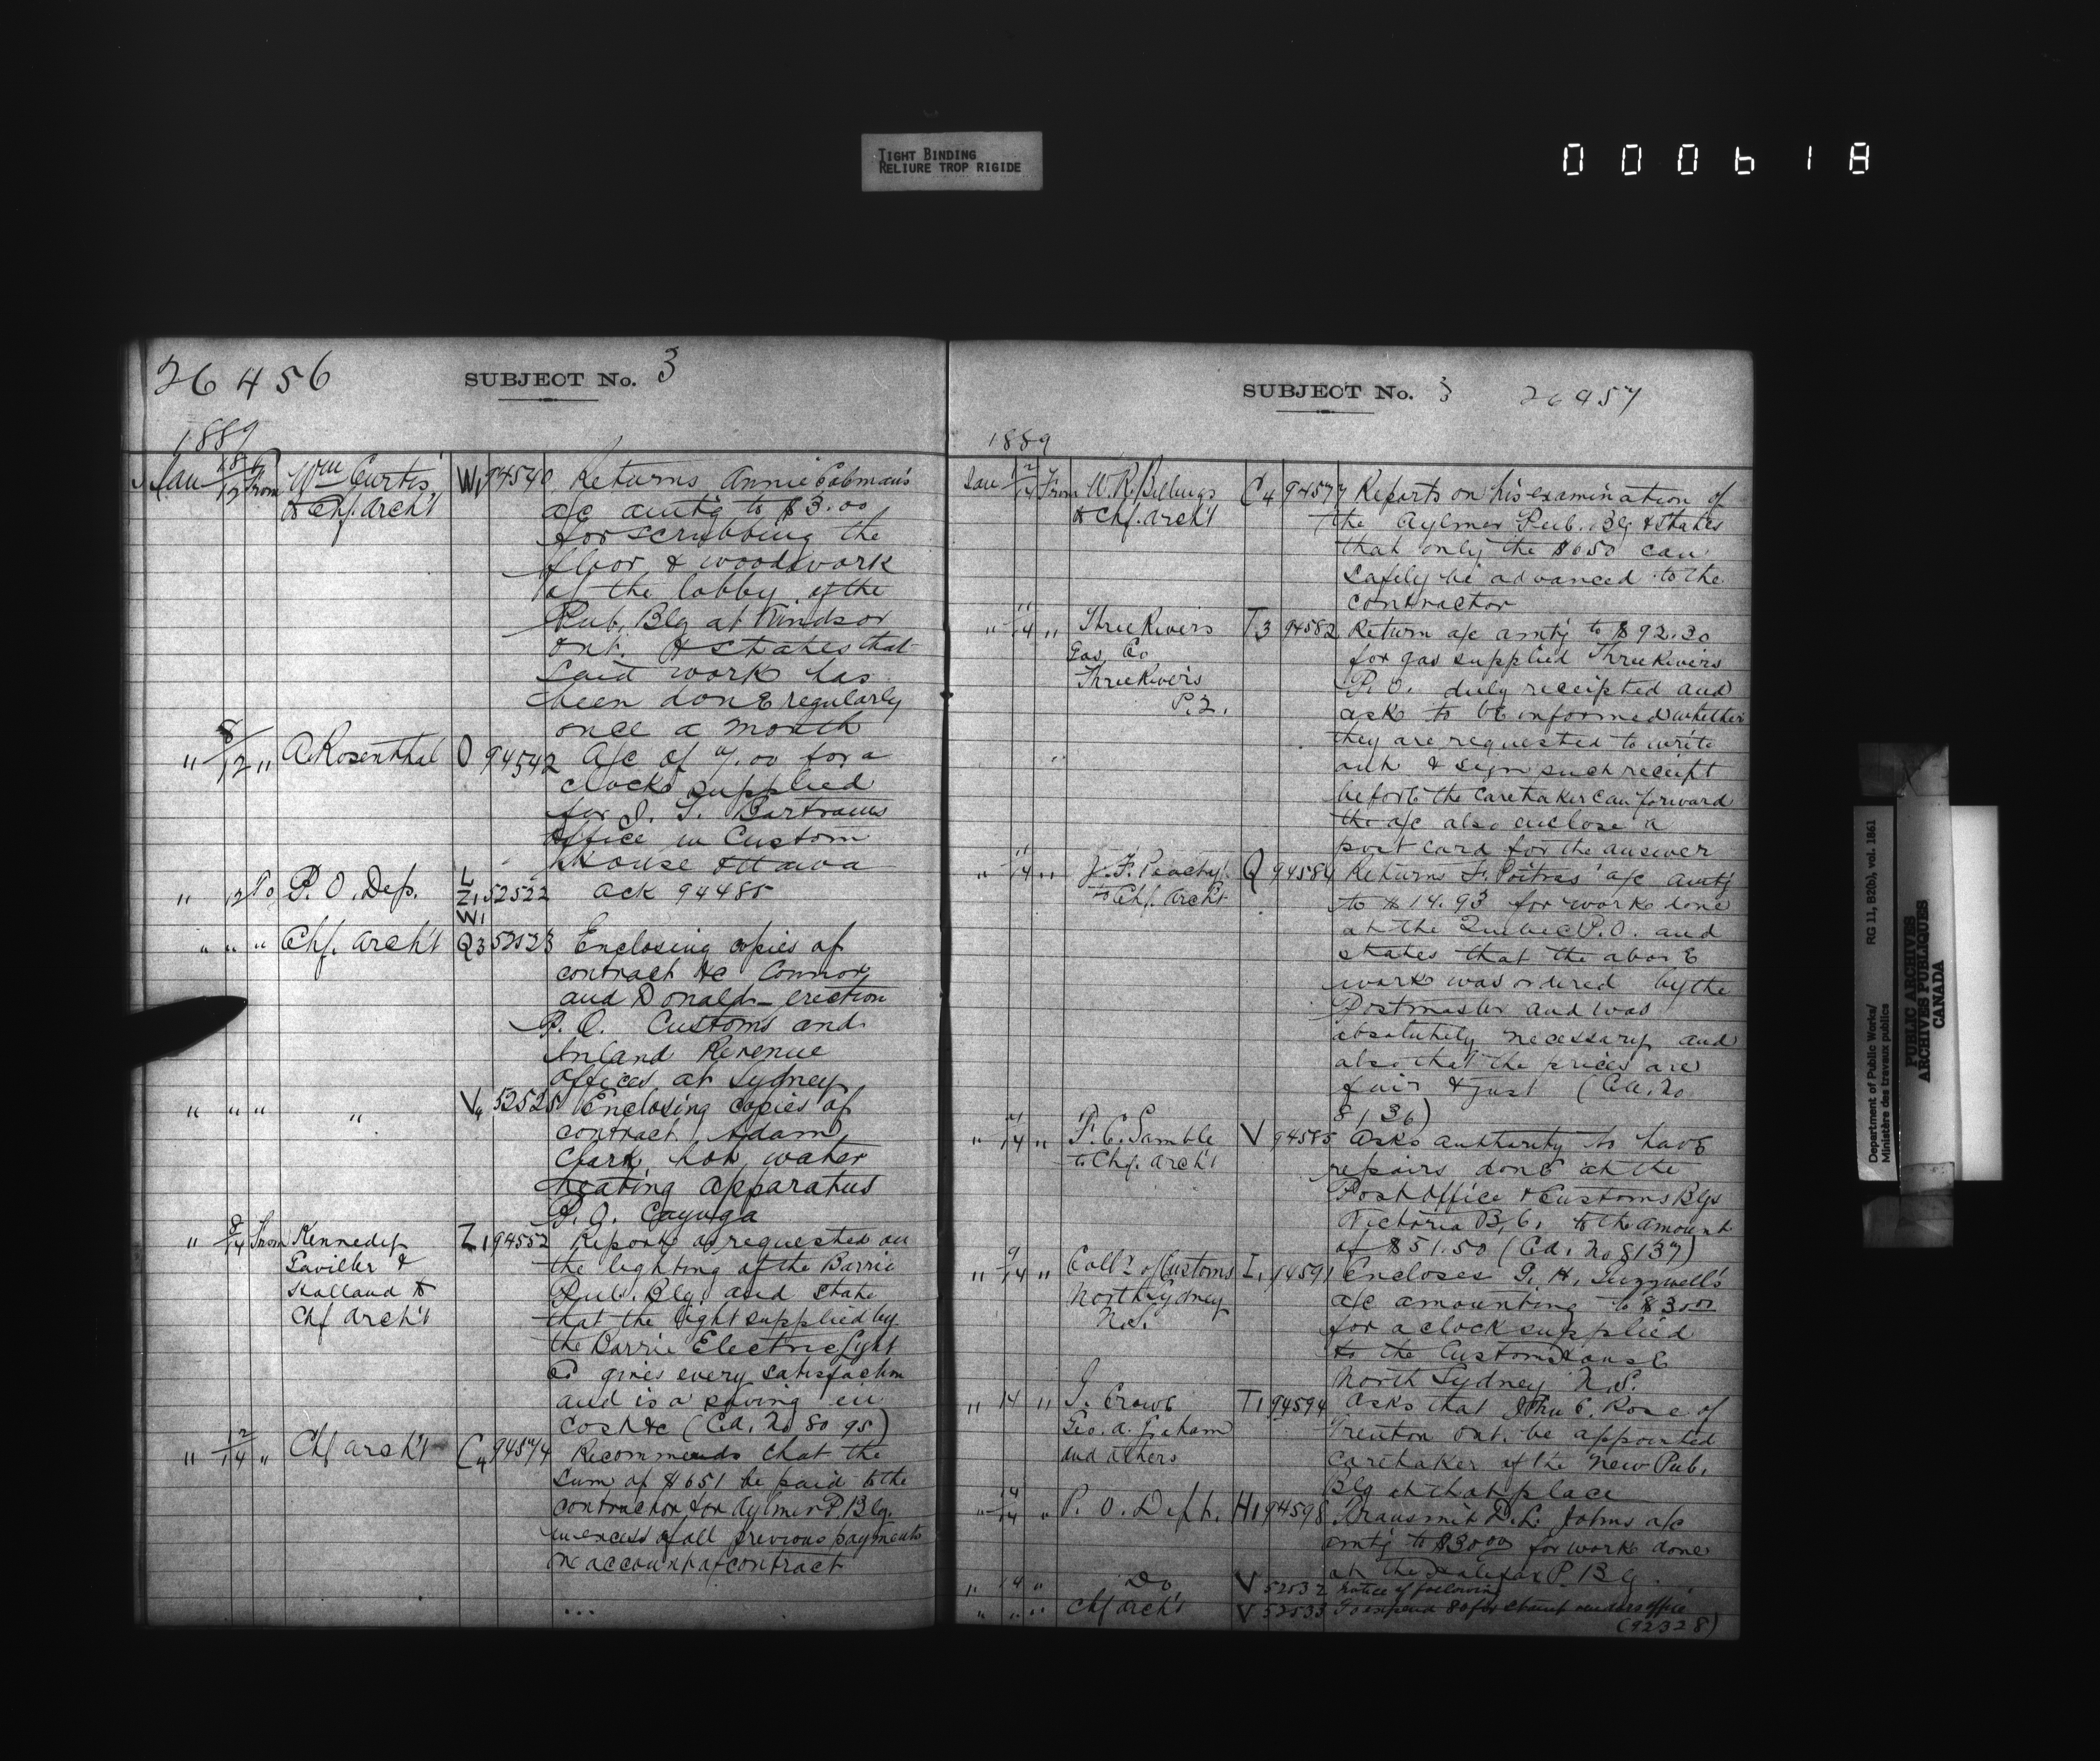 TIGHT BINDING
RELIURE TROP RIGIDE
000618
26456
SUBJECT No. 3
1889
Jan 12 From Wm Curtis W1 94540 Returns Annie
to Chf. Arch't a/c amt'g to $3.00
for scrubbing the
floor & woodwork
of the lobby of the
Pub. Blg at Windsor
Ont. & states that
said work has
been done regularly
once a month
" 8/12 " A. Rosenthal O 94542 A/c of 7.00 for a
clock supplied
for J. T. Bartrams
Office in Custom
House Ottawa
" 12 To P. O. Dep. L Z1 W1 52522 Ack 94485
" " " Chf. Arch't Q3 52523 Enclosing copies of
contract &c Connor
and Donald - erection
P. O. Customs and
Inland Revenue
Offices at Sydney
" " " " V4 52525 Enclosing copies of
contract Adam
Clark hot water
heating apparatus
P. O. Cayuga
" 9/14 From Kennedy Z1 94552 Reports as requested on
Gaviller & the lighting of the Barrie
Holland to Pub. Blg. and state
Chf Arch't that the light supplied by
the Barrie Electric Light
Co gives every satisfaction
and is a saving in
cost &c (Cd. No 8095)
" 12/14 " Chf Arch't C4 94574 Recommends that the
sum of $651 be paid to the
contractor for Aylmer P. Blg.
in excess of all previous payments
on account of contract
SUBJECT No. 3 26457
1889
Jan 12/14 From W. R. Billings C4 94577 Reports on his examination of
to Chf. Arch't the Aylmer Pub. Blg & states
that only the $650 can
safely be advanced to the
contractor
" 11/14 " Three Rivers T3 94582 Return a/c amt'g to $92.30
Gas Co for gas supplied Three Rivers
Three Rivers P. O. duly receipted and
P.Q. ask to be informed whether
they are requested to write
out & sign such receipt
before the caretaker can forward
the a/c also enclose a
post card for the answer
" 11/14 " J. F. Peachy Q 94584 Returns F. Poitras' a/c amt'g
to Chf. Arch't to $14.93 for work done
at the Quebec P.O. and
states that the above
work was ordered by the
Postmaster and was
absolutely necessary and
also that the prices are
fair & just (Cd. No
8136)
" 14 " F. C. Gamble V 94585 Asks authority to have
to Chf. Arch't repairs done at the
Post Office & Customs Blgs
Victoria B. C. to the amount
of $51.50 (Cd. No 8137)
" 9/14 " Coll'r of Customs I1 94591 Encloses G. H.
North Sydney a/c amounting to $30.00
N.S. for a clock supplied
to the Customs House
North Sydney N.S.
" 14 " J. Crowe T1 94594 Asks that John C. Rose of
Geo. A. Graham Trenton Ont. be appointed
and others caretaker of the new Pub.
Blg at that place
" 14/14 " P. O. Dept. H1 94598 Transmit D. L. Johns a/c
amt'g to $30.00 for work done
at the Halifax P. Blg.
" 14 " Do V 52532 Notice of following
" " " Chf Arch't V 52533 To expend 80 for Stamp vendors office
(92328)
Department of Public Works/
Ministère des travaux publics
RG 11, B2(b), vol. 1861
PUBLIC ARCHIVES
ARCHIVES PUBLIQUES
CANADA